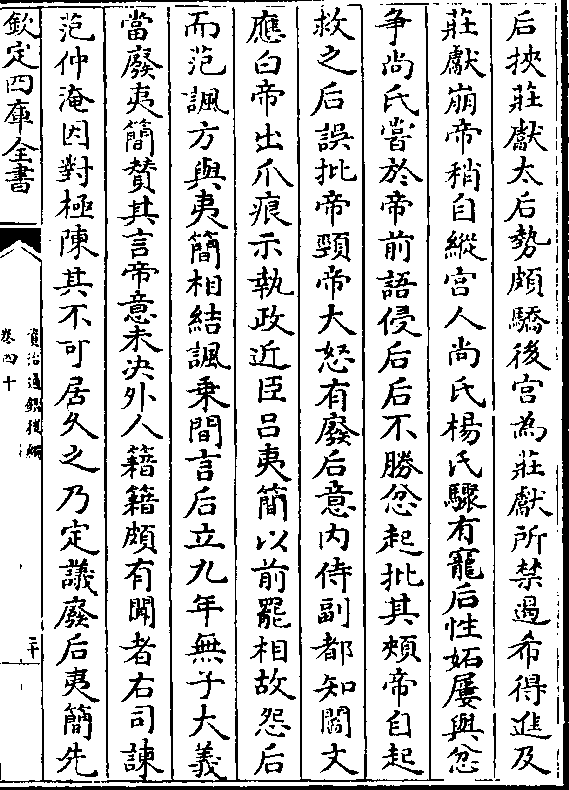 后挾莊獻太后勢頗驕後宫為莊獻所禁遏希得進及
莊獻崩帝稍自縱宫人尚氏楊氏驟有寵后性妬屢與忿
争尚氏嘗於帝前語侵后后不勝忿起批其頰帝自起
救之后誤批帝頸帝大怒有廢后意内侍副都知閻文
應白帝出爪痕示執政近臣吕夷簡以前罷相故怨后
而范諷方與夷簡相結諷乗間言后立九年無子大義
當廢夷簡賛其言帝意未决外人籍籍頗有聞者右司諫
范仲淹因對極陳其不可居久之乃定議廢后夷簡先
欽定四庫全書
資治通鑑後編
卷四十
二十